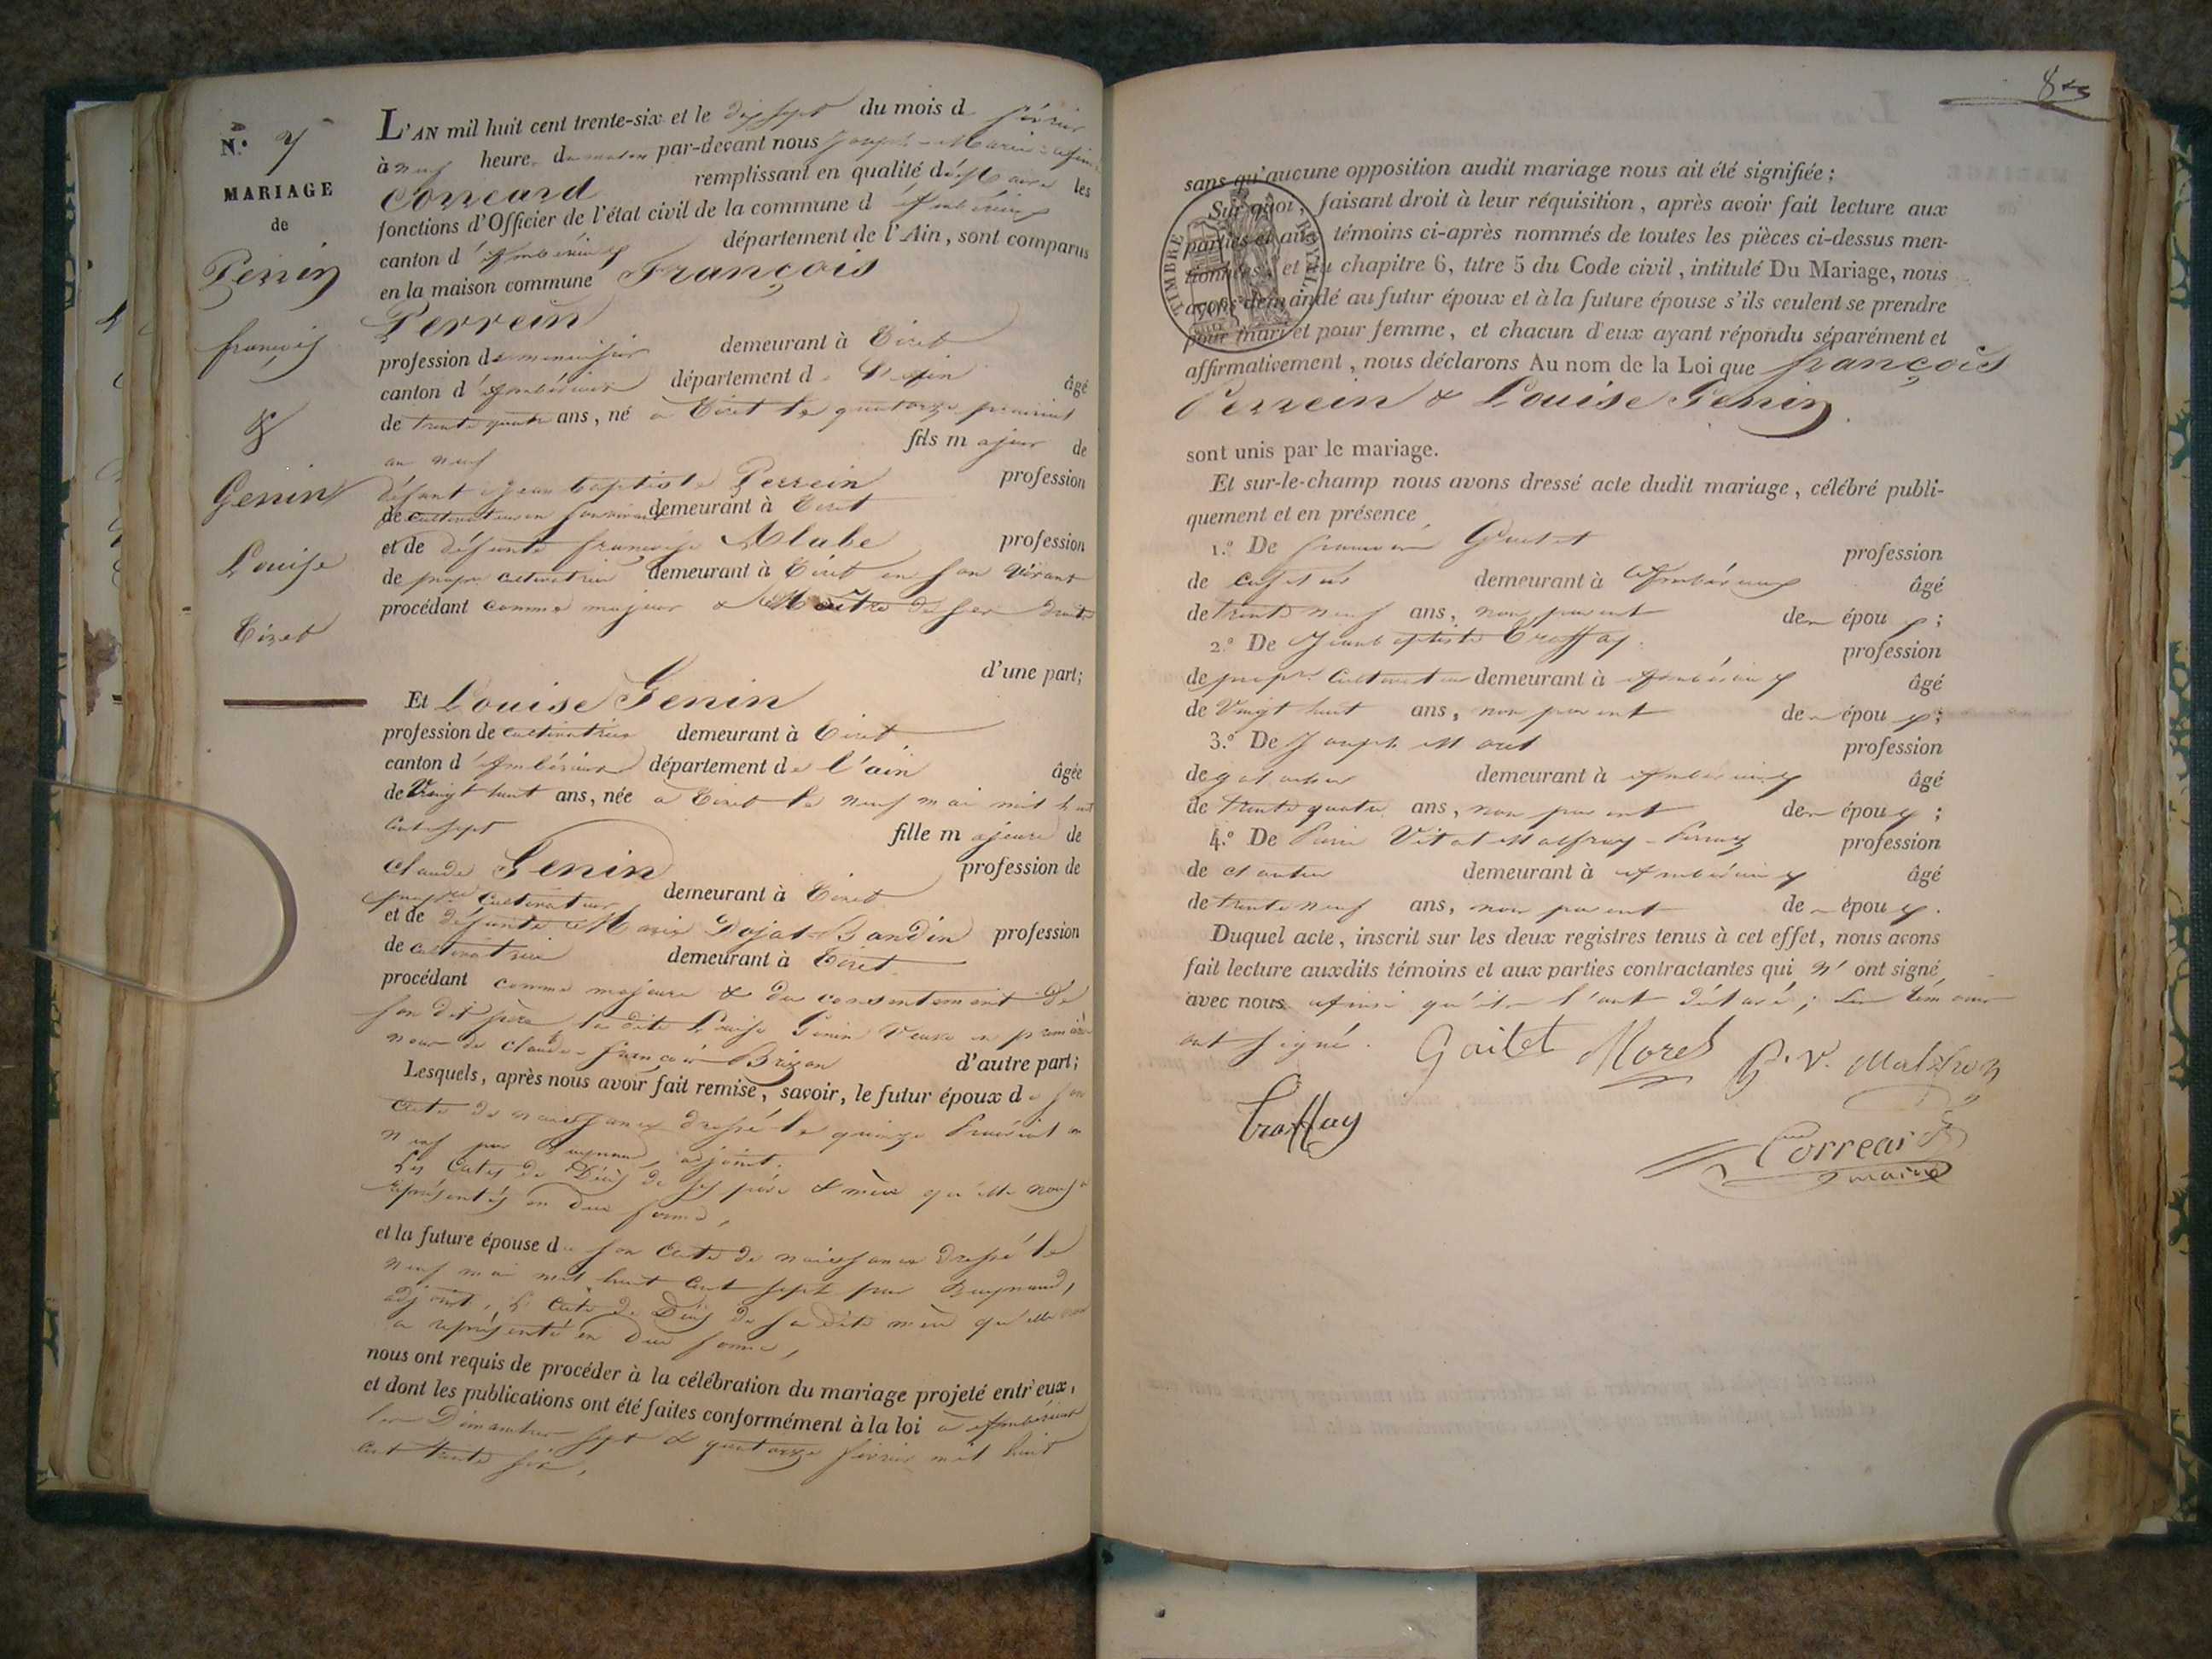 N.° 7
MARIAGE
de
Perrin
françois
&
Genin
Louise
Tiret
L'AN mil huit cent trente-six et le dix sept du mois d février
à neuf heure du matin par-devant nous Joseph-Marie
Correard remplissant en qualité de Maire les
fonctions d'Officier de l'état civil de la commune d'Ambérieux
canton d'Ambérieux département de l'Ain, sont comparus
en la maison commune François
Perrein
profession de menuisier demeurant à Tiret
canton d'Ambérieux département de l'Ain âgé
de trente quatre ans, né à Tiret le quatorze prairial
an neuf fils majeur de
défunt Jean baptiste Perrein profession
de cultivateur en son vivant demeurant à Tiret
et de défunte françoise profession
de propre cultivatrice demeurant à Tiret en son vivant
procédant comme majeur & Maître de ses droits
d'une part;
Et Louise Genin
profession de cultivatrice demeurant à Tiret
canton d'Ambérieux département de l'ain âgée
de Vingt huit ans, née a Tiret le neuf mai mil huit
cent sept fille majeure de
claude Genin profession de
propre cultivateur demeurant à Tiret
et de défunte Marie Dojat-Bandin profession
de cultivatrice demeurant à Tiret
procédant comme majeure & du consentement de
son dit père, la dite Louise Genin veuve en première
noce de claude françois Brizon d'autre part;
Lesquels, après nous avoir fait remise, savoir, le futur époux de son
acte de naissance dressé le quinze Prairial an
neuf par adjoint.
Les actes de Décès de ses père & mère qu'elle nous a
représentés en due forme,
et la future épouse de son acte de naissance dressé le
neuf mai mil huit cent sept par
adjoint, L'acte de Décès de sa dite mère qu'elle nous
a représenté en due forme,
nous ont requis de procéder à la célébration du mariage projeté entr'eux,
et dont les publications ont été faites conformément à la loi à Ambérieux
les Dimanches sept & quatorze février mil huit
cent trente six.
8
sans qu'aucune opposition audit mariage nous ait été signifiée;
TIMBRE ROYAL
Sur quoi, faisant droit à leur réquisition, après avoir fait lecture aux
parties et aux témoins ci-après nommés de toutes les pièces ci-dessus men-
tionnées, et du chapitre 6, titre 5 du Code civil, intitulé Du Mariage, nous
avons demandé au futur époux et à la future épouse s'ils veulent se prendre
pour mari et pour femme, et chacun d'eux ayant répondu séparément et
affirmativement, nous déclarons Au nom de la Loi que françois
Perrein & Louise Genin
sont unis par le mariage.
Et sur-le-champ nous avons dressé acte dudit mariage, célébré publi-
quement et en présence
1.° De françois profession
de demeurant à Ambérieux âgé
de trente neuf ans, non parent des époux;
2.° De Jean baptiste Troffay profession
de propre Cultivateur demeurant à Ambérieux âgé
de Vingt huit ans, non parent des époux;
3.° De Joseph Morel profession
de demeurant à Ambérieux âgé
de trente quatre ans, non parent des époux;
4.° De Pierre Vital Malfroy profession
de demeurant à Ambérieux âgé
de trente neuf ans, non parent des époux.
Duquel acte, inscrit sur les deux registres tenus à cet effet, nous avons
fait lecture auxdits témoins et aux parties contractantes qui n'ont signé
avec nous ainsi qu'ils l'ont déclaré; Les témoins
ont signé.
Goitet Morel P. V. Malfroy
Troffay
Correard
maire